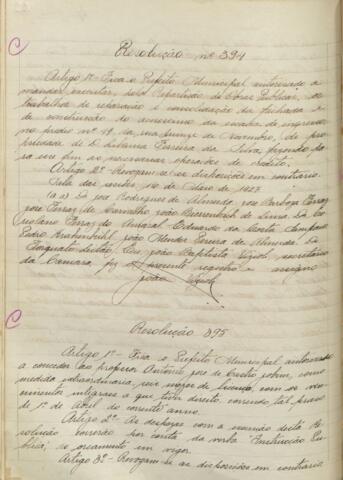 Resolução nº 394
Artigo 1º Fica o Prefeito Municipal autorizado a
mandar executar, pela Repartição de Obras Publicas, os
trabalhos de reparação e consolidação da fachada e
de construcção do
no predio nº 49 da rua Quinze de Novembro, de pro-
priedade de D. Ferreira da Silva, fazendo pa-
ra esse fim as necessarias operações de credito.
Artigo 2º Revogam-se as disposições em contrario.
Sala das sessões, 10 de Maio de 1927
(a a) Dr. José Rodrigues de Almeida, José Barbosa Ferraz,
José Ferraz de Carvalho, João Bierrenbach de Lima, Dr. Co-
Ferraz do Amaral, Eduardo da Costa Sampaio,
Pedro Krahenbuhl, João Mendes Pereira de Almeida, Dr.
Torquato Leitão. Eu, João Baptista secretario
da Camara, fiz o presente registro e assigno
João
Resolução 395
Artigo 1º Fica o Prefeito Municipal autorizado
a conceder ao professor Antonio José de Castro como
medida extraordinaria, seis mezes de licença, com os ven-
cimentos integraes a que tiver direito, correndo tal praso
de 1º de Abril do corrente anno.
Artigo 2º As despezas com a execução desta Re-
solução correrão por conta da verba "Instrucção Pu-
blica", do orçamento em vigor.
Artigo 3º Revogam-se as disposições em contrario